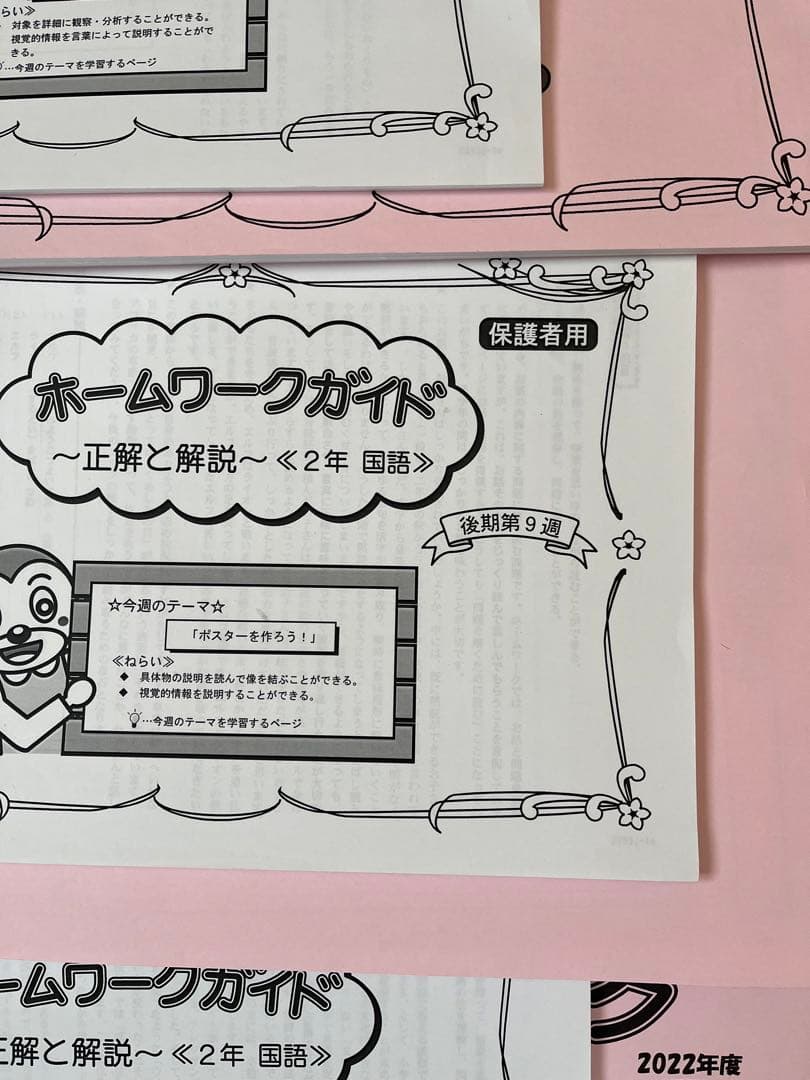 らい≫
対象を詳細に観察・分析することができる。
視覚的情報を言葉によって説明することがで
きる。
…今週のテーマを学習するページ
保護者用
ホームワークガイド
～正解と解説～≪2年 国語≫
後期第9週
☆今週のテーマ☆
「ポスターを作ろう！」
≪ねらい≫
◆ 具体物の説明を読んで像を結ぶことができる。
◆ 視覚的情報を説明することができる。
…今週のテーマを学習するページ
ームワークガイド
正解と解説～≪2年 国語≫
2022年度